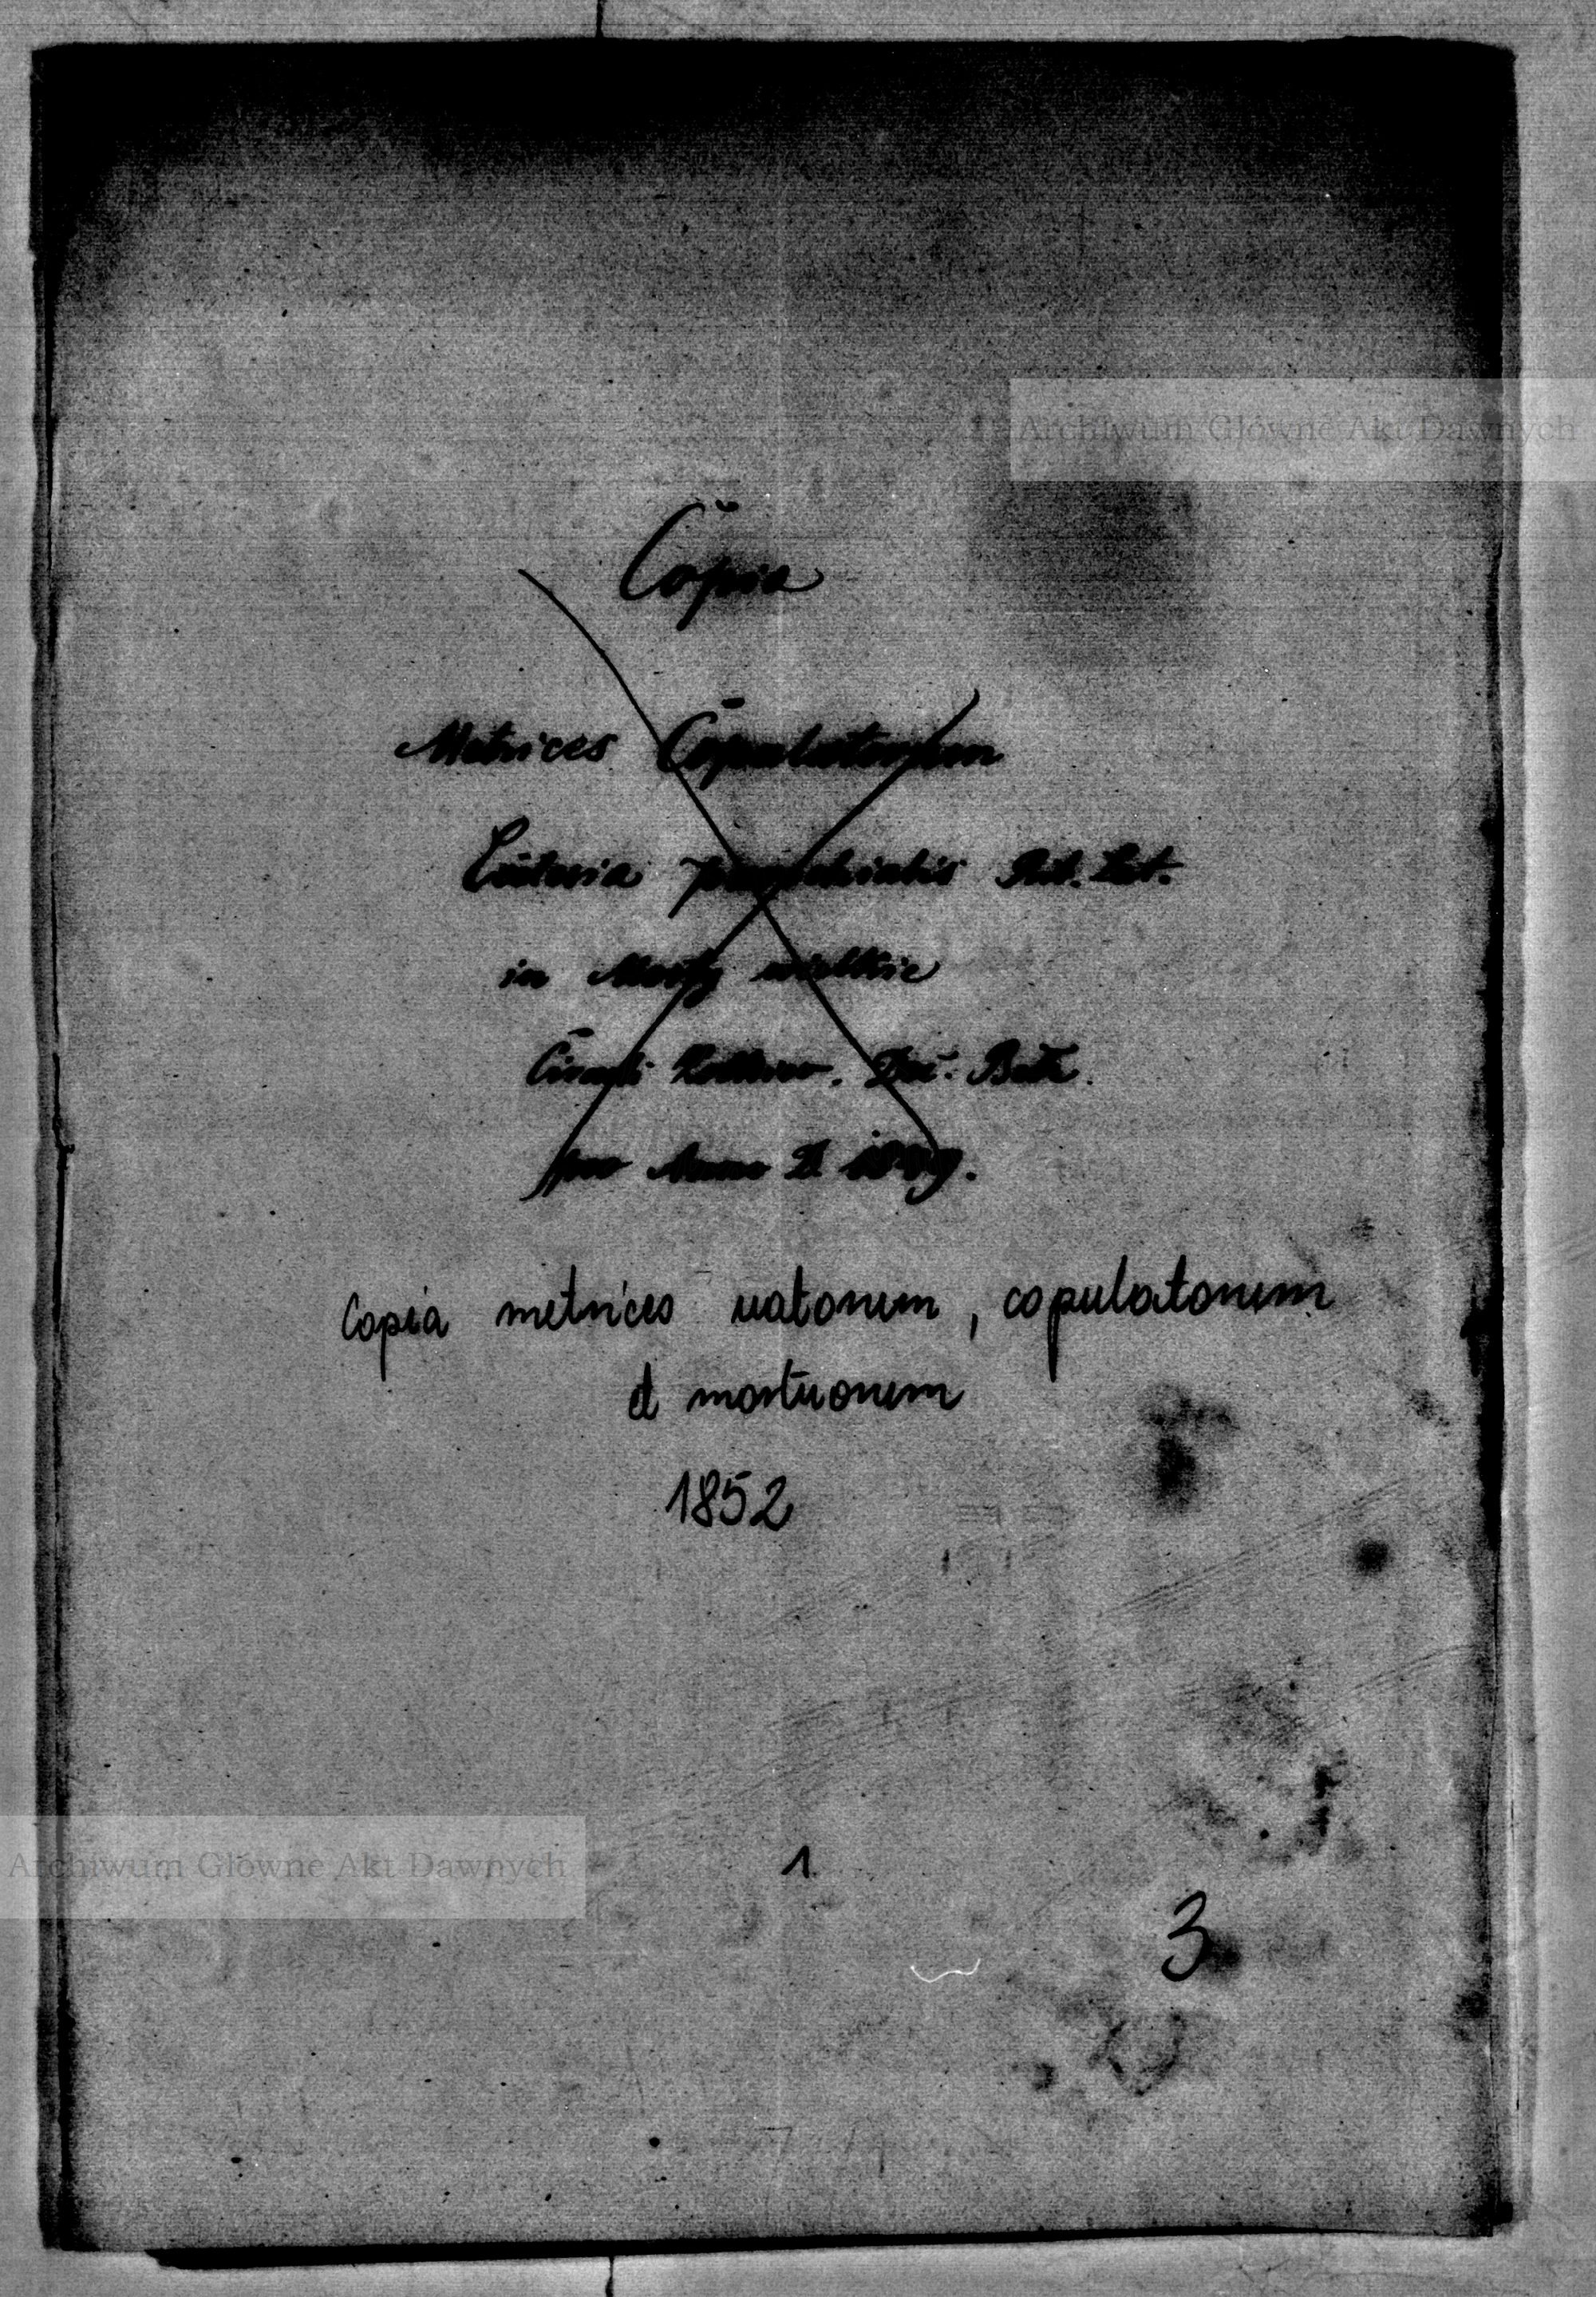 Archiwum Główne Akt Dawnych
Copia
Metrices Copulatorum
Ecclesia parochialis Rit. Lat.
in Mosty wielkie
Circuli Zolkiew. Dec. Belz.
pro Anno D.
Copia metrices natorum, copulatorum
et mortuorum
1852
Archiwum Główne Akt Dawnych
1
3